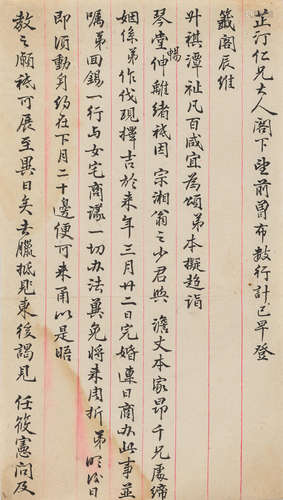 芷汀仁兄大人閣下望前曾布數行計已早登
籤閣辰維
升祺潭祉凡百咸宜為頌弟本擬趨詣
琴堂暢伸離緒祇因 宗湘翁之少君與 澹丈本家昂千兄處締
姻係弟作伐現擇吉於來年三月廿二日完婚連日商辦此事並
囑弟面錫一行與女宅商議一切办法冀免將來周折 弟明後日
即須動身約在下月二十邊便可來甬以是晤
教之願祇可展至異日矣去臘抵見東後謁見 任筱憲問及